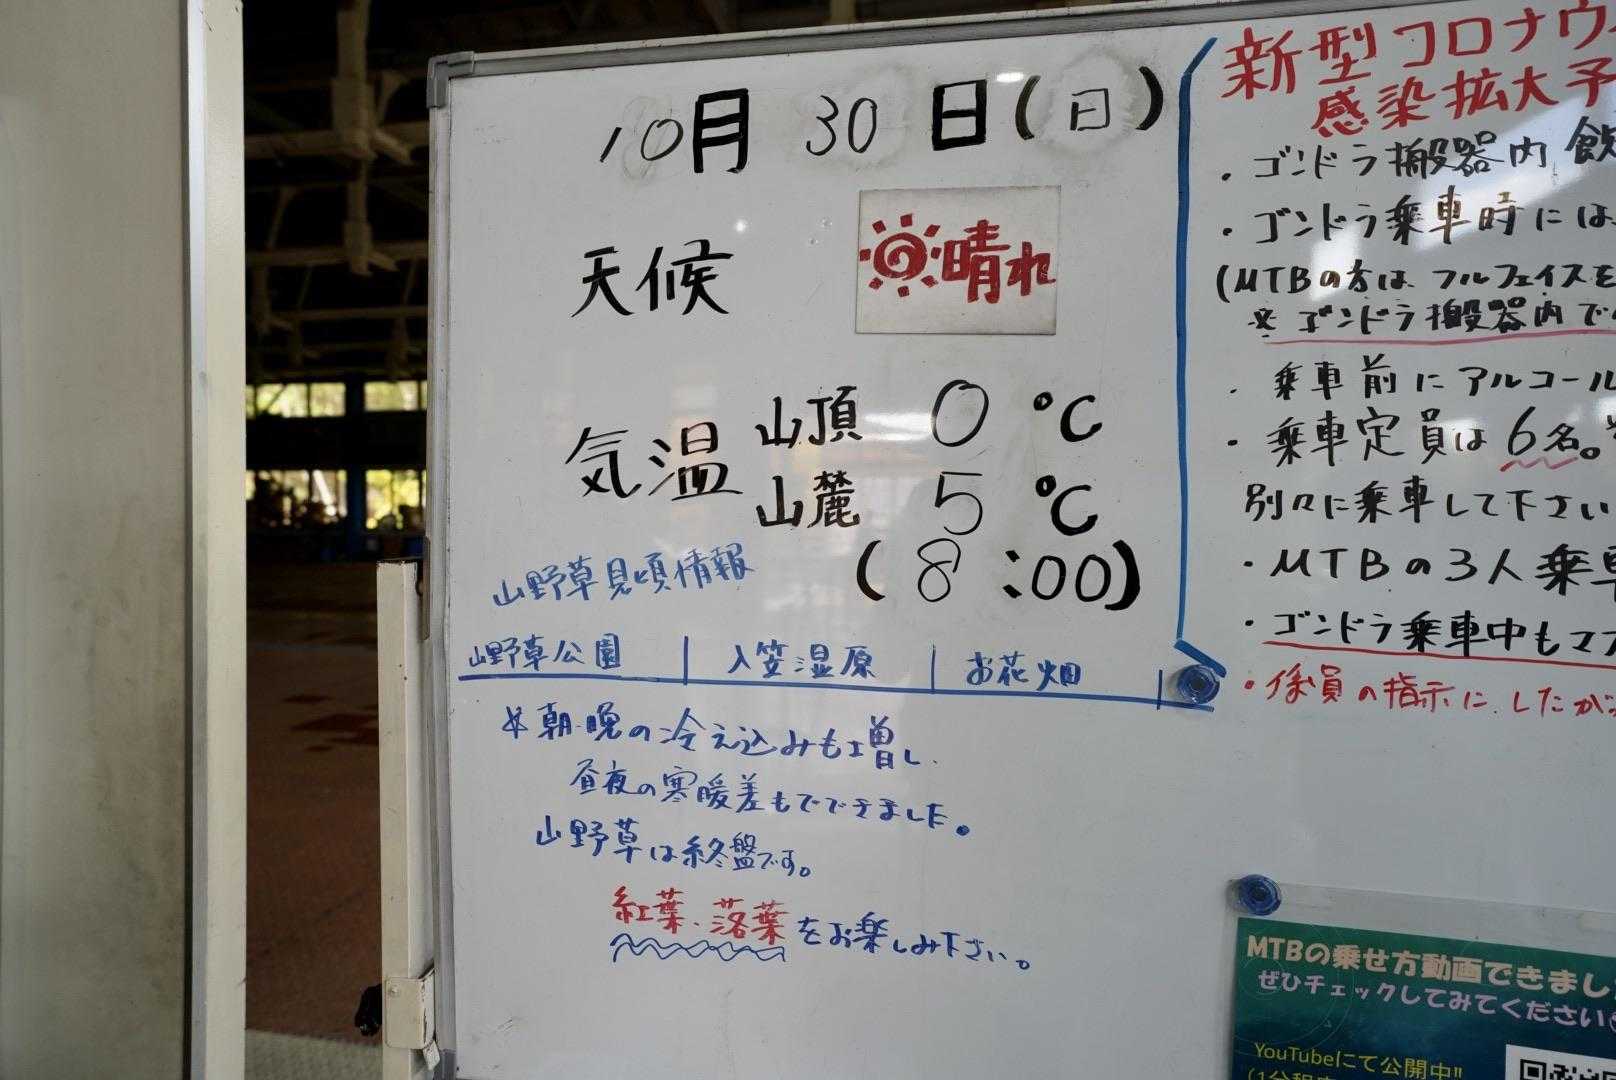 10月 30 日(日)
天候 晴れ
気温 山頂 0 ℃
山麓 5 ℃
(8:00)
山野草見頃情報
山野草公園 | 入笠湿原 | お花畑 |
※朝・晩の冷え込みも増し、
昼夜の寒暖差もでてきました。
山野草は終盤です。
紅葉・落葉をお楽しみ下さい。
新型コロナウ
感染拡大予
・ゴンドラ搬器内 飲
・ゴンドラ乗車時には
(MTBの方は フルフェイスを
※ゴンドラ搬器内で
・乗車前にアルコール
・乗車定員は6名。
別々に乗車して下さい
・MTBの3人乗車
・ゴンドラ乗車中もマス
・係員の指示に、したが
MTBの乗せ方動画できまし
ぜひチェックしてみてください
YouTubeにて公開中!!